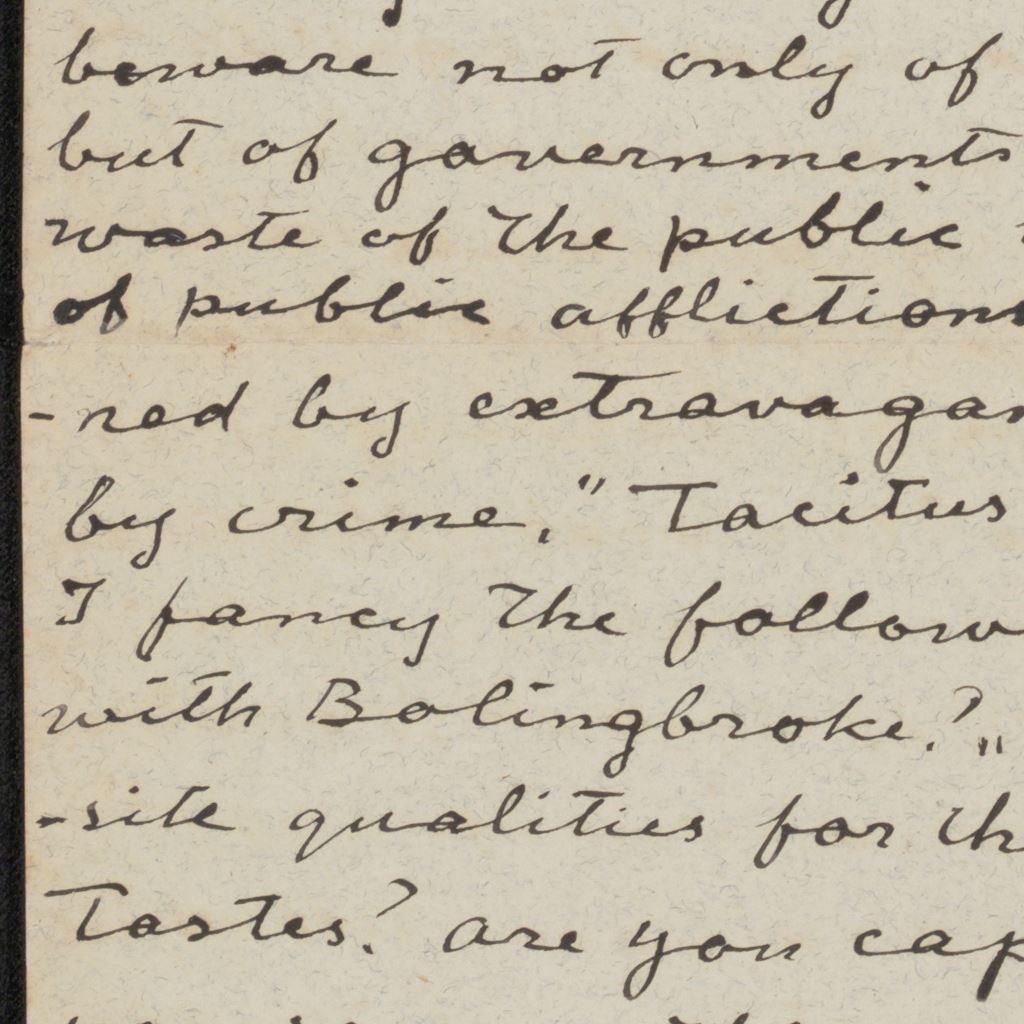 beware not only of
but of governments
waste of the public
of public afflictions
-red by extravagan
by crime." Tacitus
I fancy the follow
with Bolingbroke? "
-site qualities for th
Tastes? are you cap